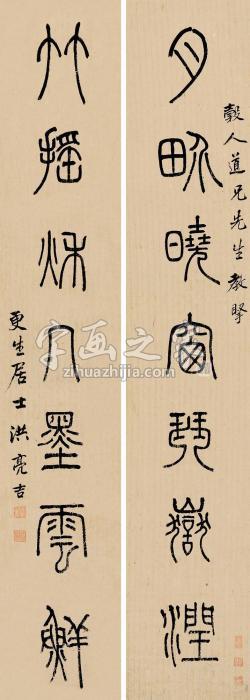 穀人道兄先生教
月曉窗琴嶽潤
竹搖秋几墨雲鮮
更生居士洪亮吉
字画之家
zihuazhijia.com